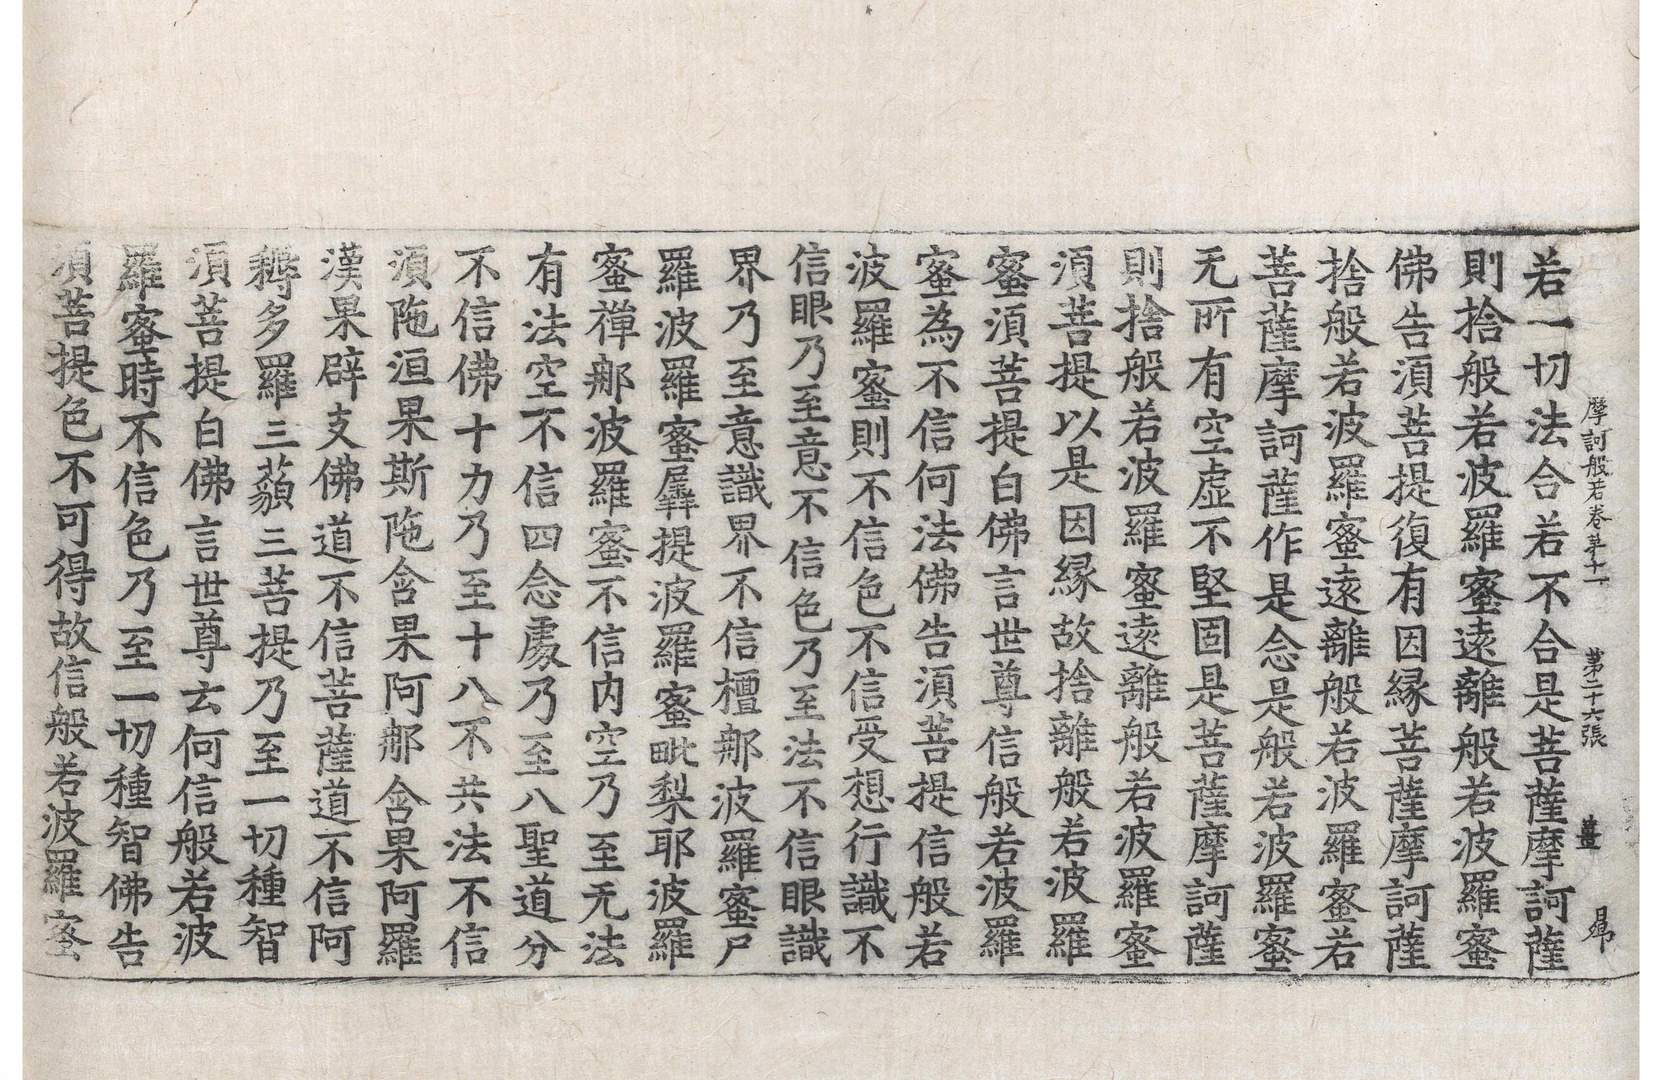 摩訶般若卷第十一 第二十六張 薑 昂
若一切法合若不合是菩薩摩訶薩
則捨般若波羅蜜遠離般若波羅蜜
佛告須菩提復有因緣菩薩摩訶薩
捨般若波羅蜜遠離般若波羅蜜若
菩薩摩訶薩作是念是般若波羅蜜
无所有空虛不堅固是菩薩摩訶薩
則捨般若波羅蜜遠離般若波羅蜜
須菩提以是因緣故捨離般若波羅
蜜須菩提白佛言世尊信般若波羅
蜜為不信何法佛告須菩提信般若
波羅蜜則不信色不信受想行識不
信眼乃至意不信色乃至法不信眼識
界乃至意識界不信檀那波羅蜜尸
羅波羅蜜羼提波羅蜜毗梨耶波羅
蜜禪那波羅蜜不信內空乃至无法
有法空不信四念處乃至八聖道分
不信佛十力乃至十八不共法不信
須陁洹果斯陁含果阿那含果阿羅
漢果辟支佛道不信菩薩道不信阿
耨多羅三藐三菩提乃至一切種智
須菩提白佛言世尊云何信般若波
羅蜜時不信色乃至一切種智佛告
須菩提色不可得故信般若波羅蜜